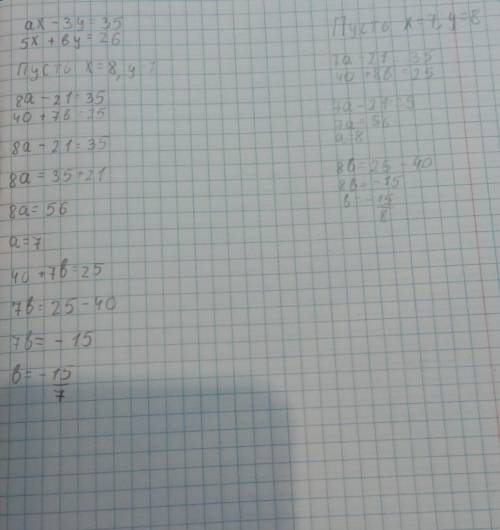 ax - 3y = 35
5x + by = 26
Пусть x = 8, y
8a - 21 = 35
40 + 7b = 25
8a - 21 = 35
8a = 35 + 21
8a = 56
a = 7
40 + 7b = 25
7b = 25 - 40
7b = - 15
b = - 15/7
Пусть x = 7, y = 8
7a - 21 = 35
40 + 8b = 25
7a - 21 =
7a = 56
a = 8
8b = 25 - 40
8b = - 15
b = - 15/8